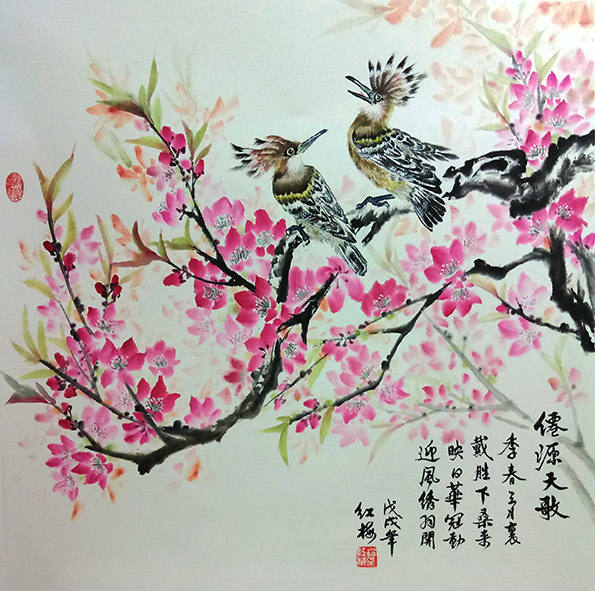 僊源天歌
季春三月裏
戴胜下桑来
映日華冠動
迎風绣羽開
戊戌年
红梅